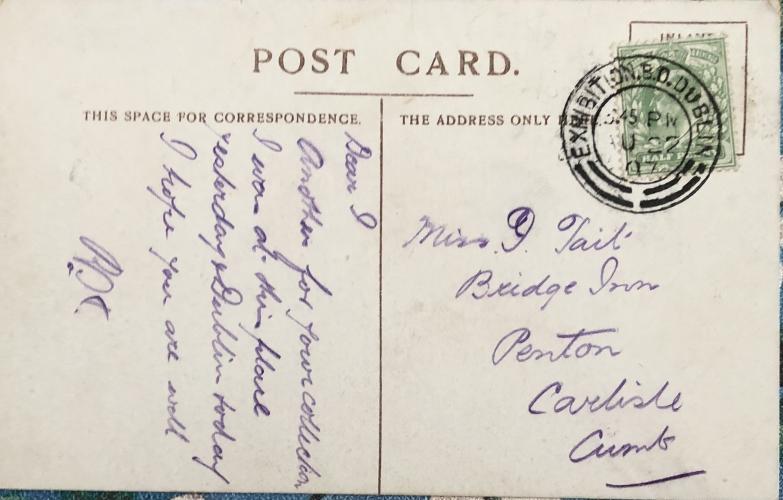 POST CARD.
THIS SPACE FOR CORRESPONDENCE.
Dear I
Another for your collection
I was at this place
yesterday & Dublin today
I hope you are well
THE ADDRESS ONLY
INLAND
EXHIBITION. B.O. DUBLIN
.45 PM
22
07
HALF
Miss I Tait
Bridge Inn
Penton
Carlisle
Cumb